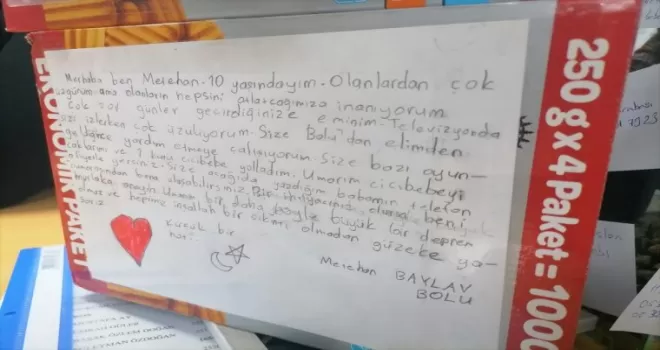 Merhaba ben Merehan. 10 yaşındayım. Olanlardan çok
üzgünüm ama olanların hepsini atlatacağımıza inanıyorum
Çok zor günler geçirdiğinize eminim. Televizyonda
sizi izlerken çok üzülüyorum. Size Bolu'dan elimden
geldiğince yardım etmeye çalışıyorum. Size bazı oyun-
caklarımı ve 1 kutu cicibebe yolladım. Umarım cicibebeyi
afiyetle yersiniz. Size aşağıda yazdığım babamın telefon
numarasından bana ulaşabilirsiniz. Bir ihtiyacınız olursa beni
mutlaka arayın. Umarım bir daha böyle büyük bir deprem
olmaz ve hepimiz inşallah bir çıban olmadan güzelce ya-
Küçük bir
not:
Merehan BAYLAV
BOLU
EKONOMİK PAKET
250g x 4 Paket = 1000
ÖZLEM DOĞAN
ÖZDOĞAN